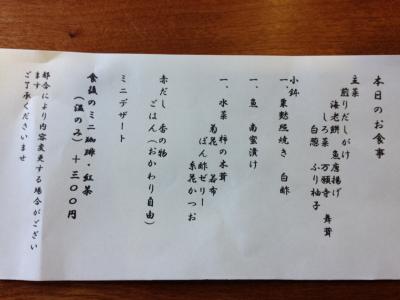 本日のお食事
主菜
煎りだしがけ 魚唐揚げ 舞茸
海老餅 菜 万願寺
しろ 白葱 ふり柚子
小鉢
一、粟麩照焼き 白酢
一、魚 南蛮漬け
一、水菜 柿の木茸
菊花 若布
ぽん酢ゼリー
糸花かつお
赤だし 香の物
ごはん(おかわり自由)
ミニデザート
食後のミニ珈琲・紅茶
(温のみ)+三〇〇円
都合により内容変更する場合がござい
ます
ご了承くださいませ